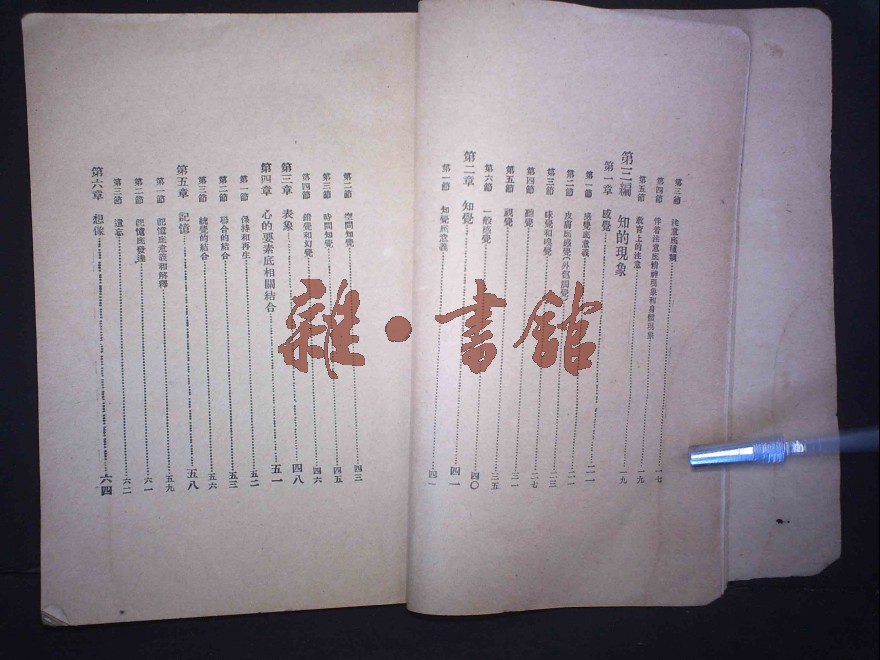 第三節 注意底種類……一七
第四節 伴着注意底精神現象和身體現象
第五節 教育上的注意……一九
第三編 知的現象……一九
第一章 感覺……二一
第一節 感覺底意義……二一
第二節 皮膚底感覺(外部觸覺)……二一
第三節 味覺和嗅覺……二三
第四節 聽覺……二七
第五節 視覺……三一
第六節 一般感覺……三五
第二章 知覺……四〇
第一節 知覺底意義……四一
第二節 空間知覺……四三
第三節 時間知覺……四五
第四節 錯覺和幻覺……四六
第三章 表象……四八
第四章 心的要素底相關結合……五一
第一節 保持和再生……五二
第二節 聯合的結合……五三
第三節 統覺的結合……五六
第五章 記憶……五八
第一節 記憶底意義和解釋……五九
第二節 記憶底發達……六一
第三節 遺忘……六二
第六章 想像……六四
雜·書館